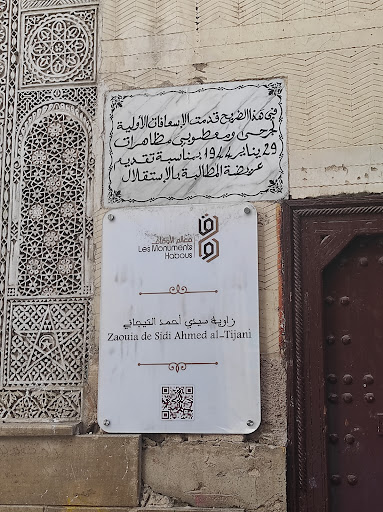 في هذا الضريح قدمت الإسعافات الأولية
لجرحى ومعطوبي مظاهرات
29 يناير 1944 بمناسبة تقديم
عريضة المطالبة بالإستقلال
معالم الأوقاف
Les Monuments
Habous
زاوية سيدي أحمد التيجاني
Zaouia de Sidi Ahmed al-Tijani